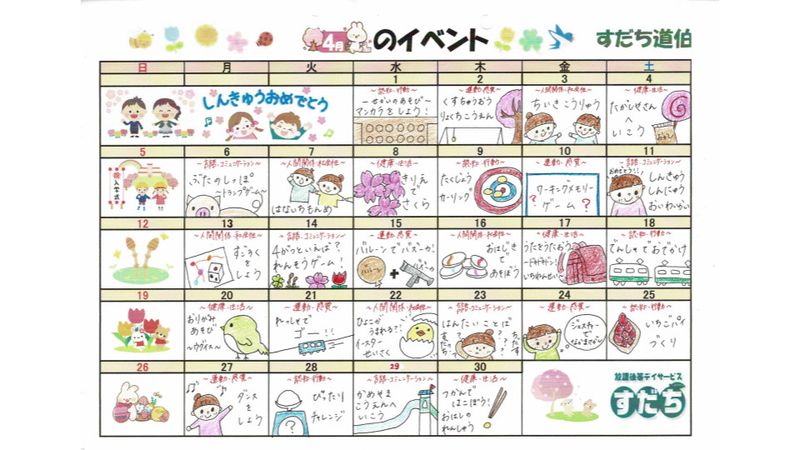 4月のイベント
すだち道伯
日 月 火 水 木 金 土
1 2 3 4
しんきゅうおめでとう
~認知・行動~
~せかいのあそび~
マンカラをしよう!
~運動・感覚~
くすちゅうおう
りょくちこうえん
~人間関係・社会性~
ちいきこうりゅう
~健康・生活~
たかしやさん
へ
いこう
5 6 7 8 9 10 11
祝
入学式
~言語・コミュニケーション~
ぶたのしっぽ
~トランプゲーム~
~人間関係・社会性~
はないちもんめ
~健康・生活~
きりえ
で
さくら
~認知・行動~
たくじょう
カーリング
~運動・感覚~
ワーキングメモリー
ゲーム?
?
~言語・コミュニケーション~
おめでとう!!
しんきゅう
しんにゅう
おいわいかい
12 13 14 15 16 17 18
~人間関係・社会性~
すごろく
を
しよう
~言語・コミュニケーション~
4がつといえば?
れんそうゲーム!
~運動・感覚~
バルーンでバズーカ!
~人間関係・社会性~
おはじき
で
あそぼう
~健康・生活~
うたをうたおう
いちねんせい
~認知・行動~
でんしゃでおでかけ
19 20 21 22 23 24 25
~健康・生活~
おりがみ
あそび
~ウグイス~
~運動・感覚~
れっしゃで
ゴー!!
~人間関係・社会性~
ひよこが
うまれる?!
イースター
せいさく
~言語・コミュニケーション~
はんたいことば
~運動・感覚~
ジェスチャーで
~認知・行動~
いちごパイ
づくり
26 27 28 29 30
~運動・感覚~
ダンス
を
しよう
~認知・行動~
ぴったり
チャレンジ
?
~言語・コミュニケーション~
かめやま
こうえんへ
いこう
~健康・生活~
つかんで
はこぼう!
おはしの
れんしゅう
放課後等デイサービス
すだち